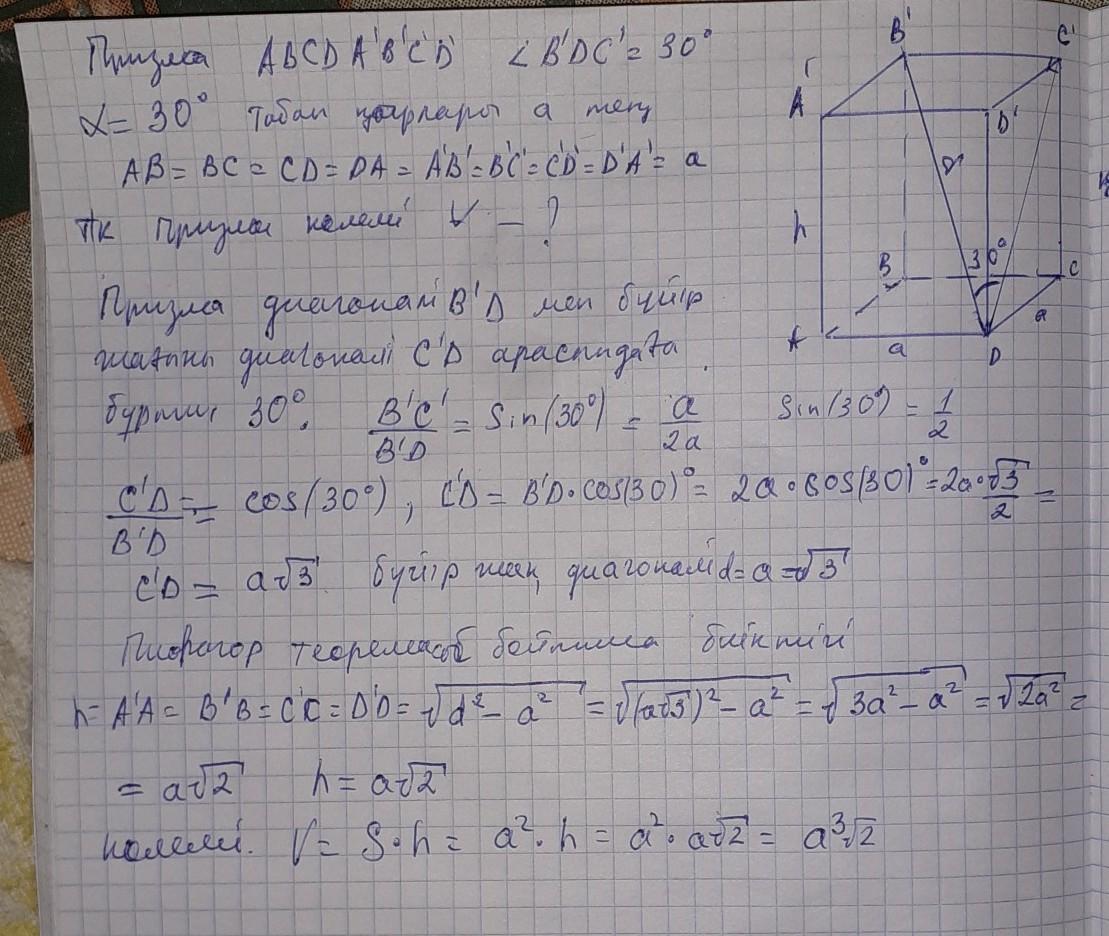 Призма ABCDA'B'C'D' ∠B'DC' = 30°
α = 30° табан қырлары a тең
AB = BC = CD = DA = A'B' = B'C' = C'D' = D'A' = a
Тк призма көлемі V — ?
Призма диагоналі B'D мен бүйір
жағының диагоналі C'D арасындағы
бұрыш 30°. B'C'/B'D = Sin(30°) = a/2a Sin(30°) = 1/2
C'D/B'D = cos(30°), C'D = B'D·cos(30)° = 2a·cos(30)° = 2a·√3/2 =
C'D = a√3 бүйір жақ диагоналі d = a√3
Пифагор теоремасы бойынша биіктігі
h = A'A = B'B = C'C = D'D = √d² - a² = √(a√3)² - a² = √3a² - a² = √2a² =
= a√2 h = a√2
көлемі. V = S·h = a²·h = a²·a√2 = a³√2
B'
C'
A'
D'
h
B
30°
C
a
A
a
D